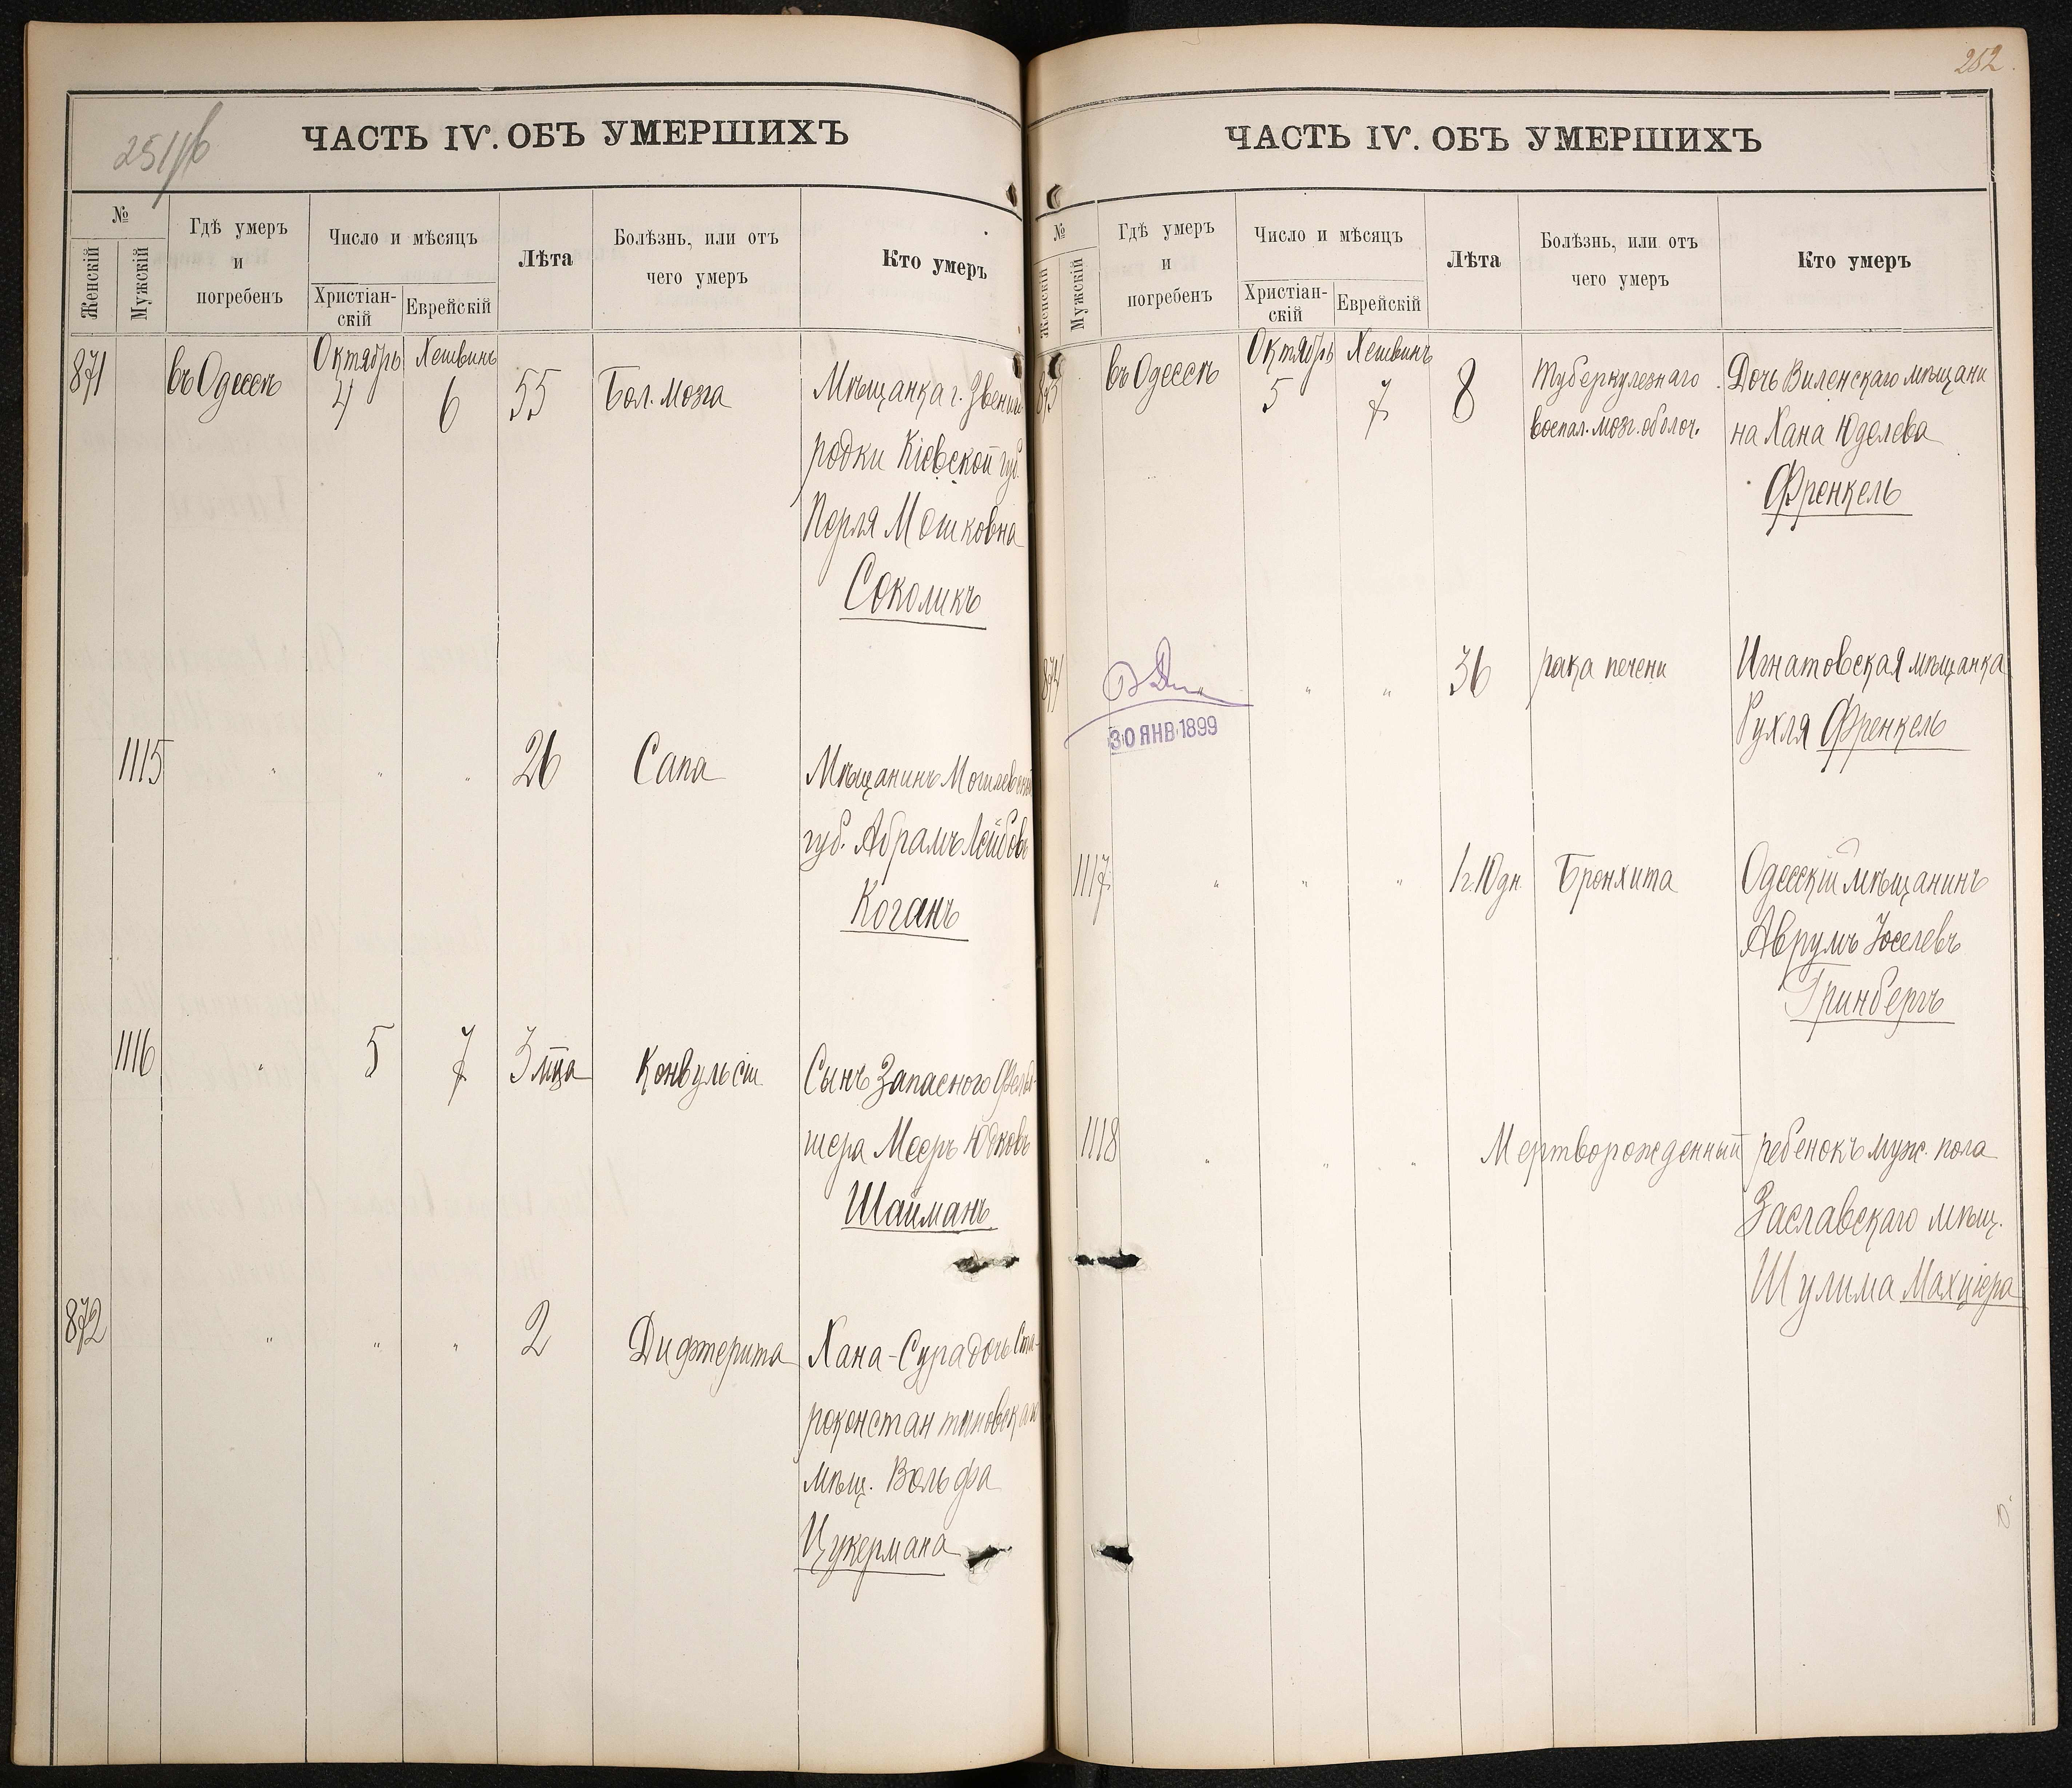 251/б
ЧАСТЬ IV. ОБЪ УМЕРШИХЪ
№
Женскій
Мужскій
Гдѣ умеръ
и
погребенъ
Число и мѣсяцъ
Христіан-
скій
Еврейскій
Лѣта
Болѣзнь, или отъ
чего умеръ
Кто умеръ
871 въ Одессѣ Октябрь 4 Хешвинъ 6 55 Бол. мозга Мѣщанка г. Звениго
родки Кіевской губ.
Перля Мошковна
Соколикъ
1115 " " " 26 Сапа Мѣщанинъ Могилевской
губ. Абрамъ Лейбовъ
Коганъ
1116 " 5 7 3 мца Конвульсіи Сынъ Запаснаго Фельд-
шера Мееръ Юдковъ
Шайманъ
872 " " " 2 Дифтерита Хана-Сура дочь Ста-
роконстантиновскаго
мѣщ. Вольфа
Цукермана
252.
ЧАСТЬ IV. ОБЪ УМЕРШИХЪ
№
Женскій
Мужскій
Гдѣ умеръ
и
погребенъ
Число и мѣсяцъ
Христіан-
скій
Еврейскій
Лѣта
Болѣзнь, или отъ
чего умеръ
Кто умеръ
873 въ Одессѣ Октябрь 5 Хешвинъ 7 8 Туберкулезнаго Дочь Виленскаго мѣщани
воспал. мозг. оболоч. на Хана Юделева
Френкель
874 " " " 36 рака печени Игнатовская мѣщанка
Рухля Френкель
30 ЯНВ 1899
1117 " " " 1 г. 10 дн. Бронхита Одесскій мѣщанинъ
Аврумъ Іоселевъ
Гринбергъ
1118 " " " Мертворожденный ребенокъ муж. пола
Заславскаго мѣщ.
Шулима Махціера